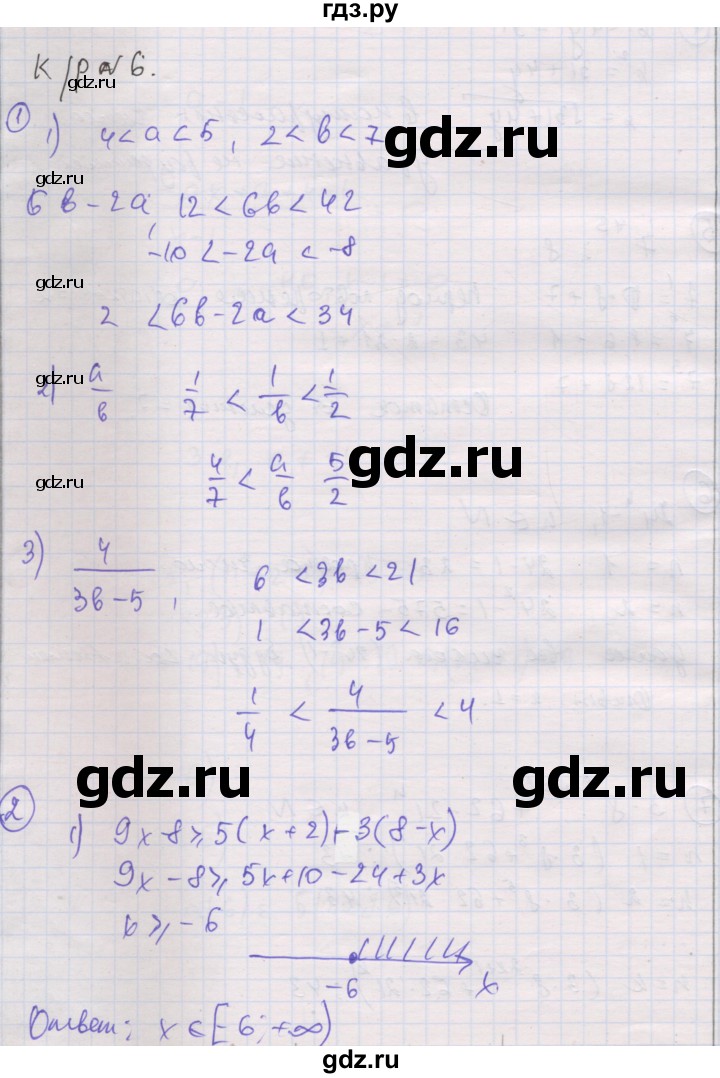 гдз.ру
К/р № 6.
① 1) 4 < a < 5, 2 < b < 7
gdz.ru
gdz.ru
6b - 2a, 12 < 6b < 42
-10 < -2a < -8
gdz.ru
gdz.ru
2 < 6b - 2a < 34
2) a/b 1/7 < 1/b < 1/2
gdz.ru
gdz.ru
4/7 < a/b 5/2
gdz.ru
gdz.ru
3) 4/(3b-5), 6 < 3b < 21
1 < 3b - 5 < 16
1/4 < 4/(3b-5) < 4
gdz.ru
gdz.ru
② 1) 9x - 8 ≥ 5(x + 2) - 3(8 - x)
9x - 8 ≥ 5x + 10 - 24 + 3x
x ≥ -6
-6 x
Ответ: x ∈ [-6; +∞)
gdz.ru